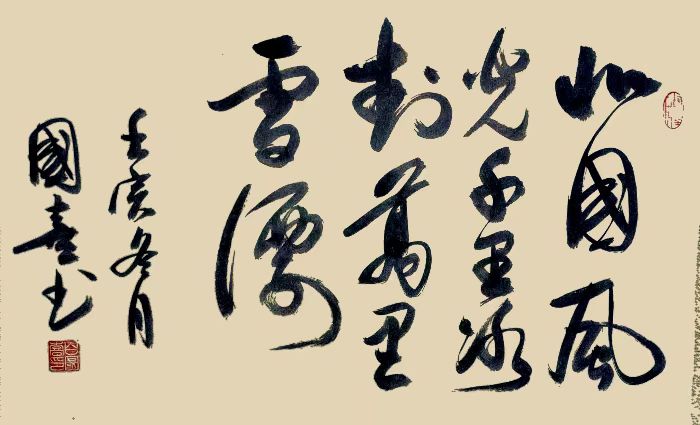 北國風
光千里冰
封萬里
雪飄
壬寅冬月
國喜书